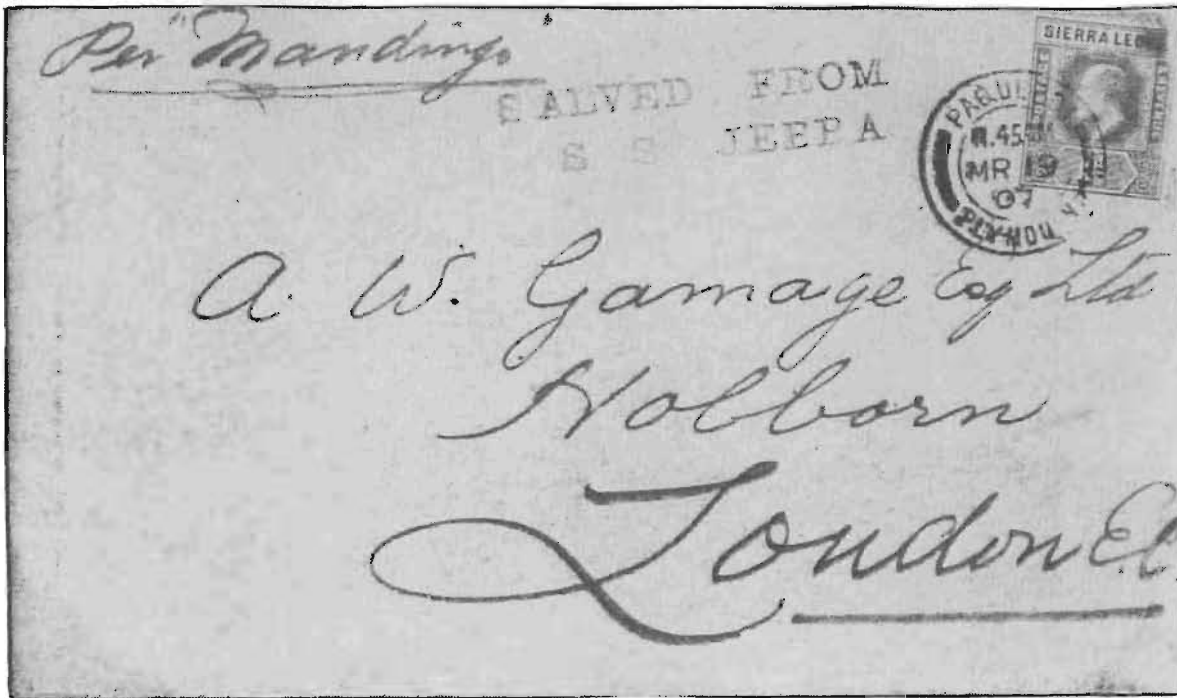 Per "Mandingo"
SALVED FROM
S S JEEPA
SIERRA LEO
PAQUE
MR 19
07
PLYMOU
A. W. Gamage Esq Ltd
Holborn
London E.C.